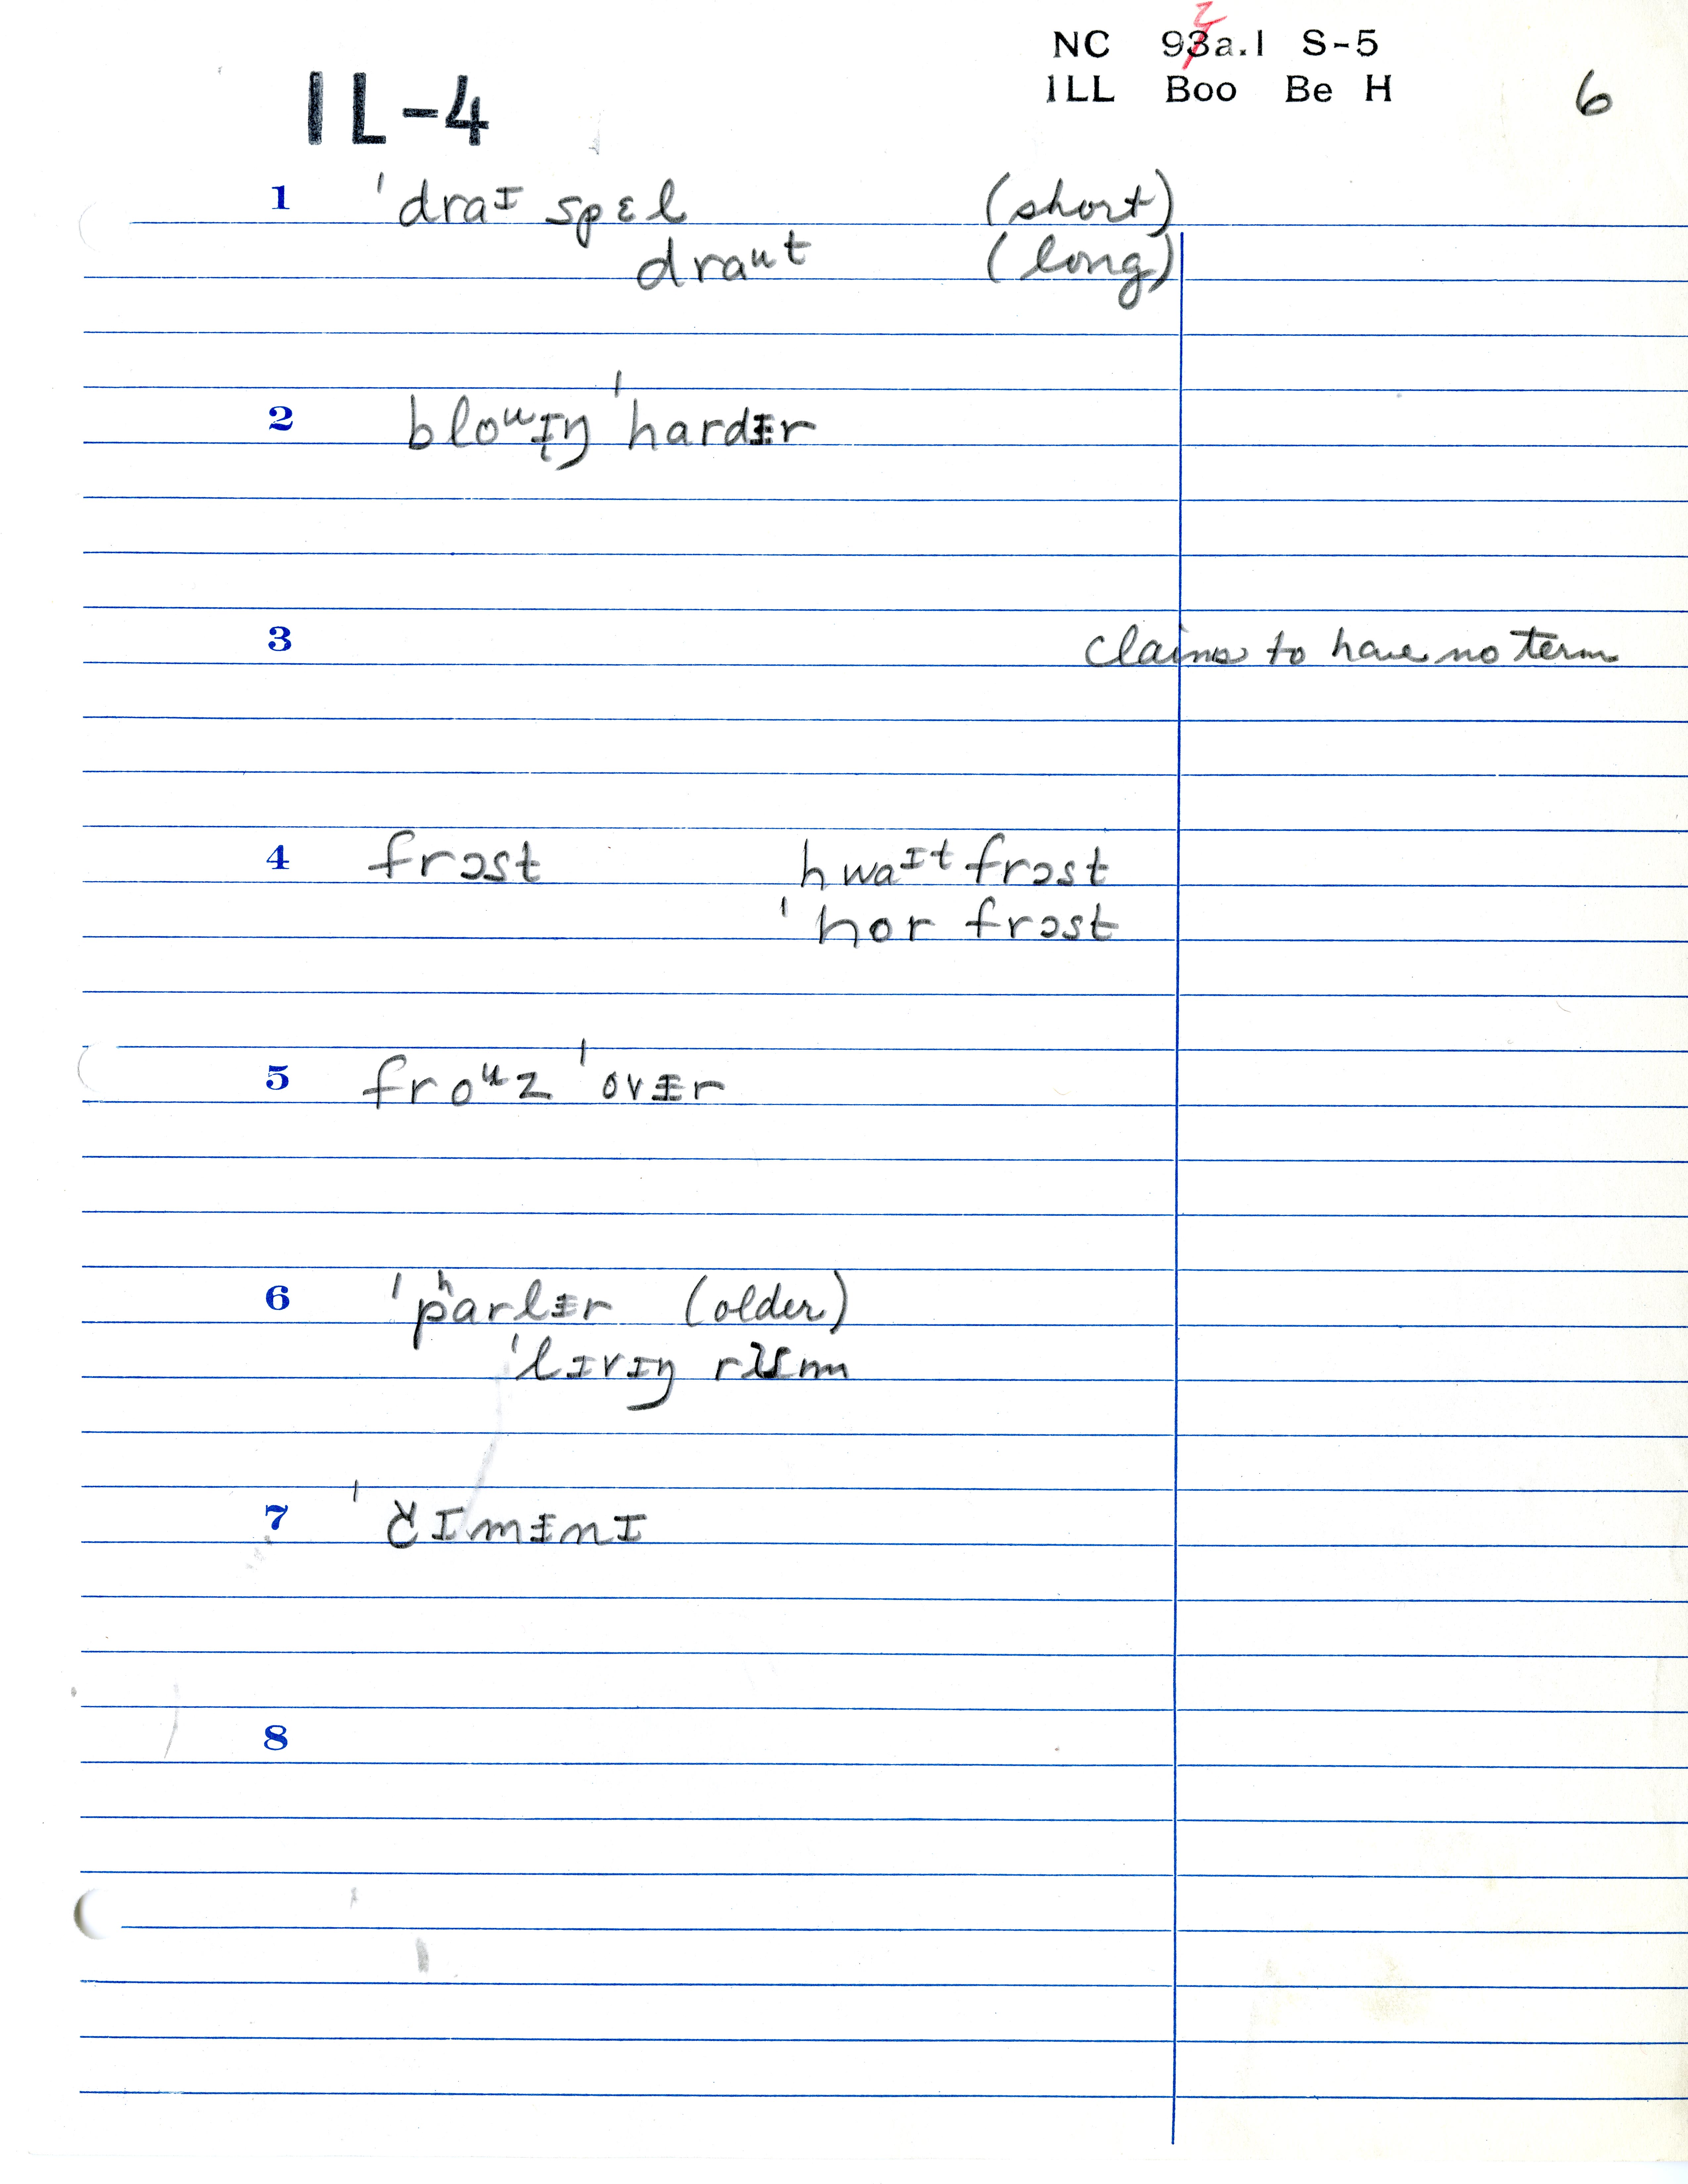 NC 92a.1 S-5
IL-4
ILL Boo Be H 6
1 ˈdraᴵ spɛl (short)
draᵘt (long)
2 bloᵘɪŋ ˈhardɨr
3 claims to have no term
4 frɔst hwaᴵt frɔst
ˈhor frɔst
5 froᵘz ˈovɨr
6 ˈpʰarlɨr (older)
ˈlɪvɪŋ rᵾm
7 ˈčɪmɨnɪ
8